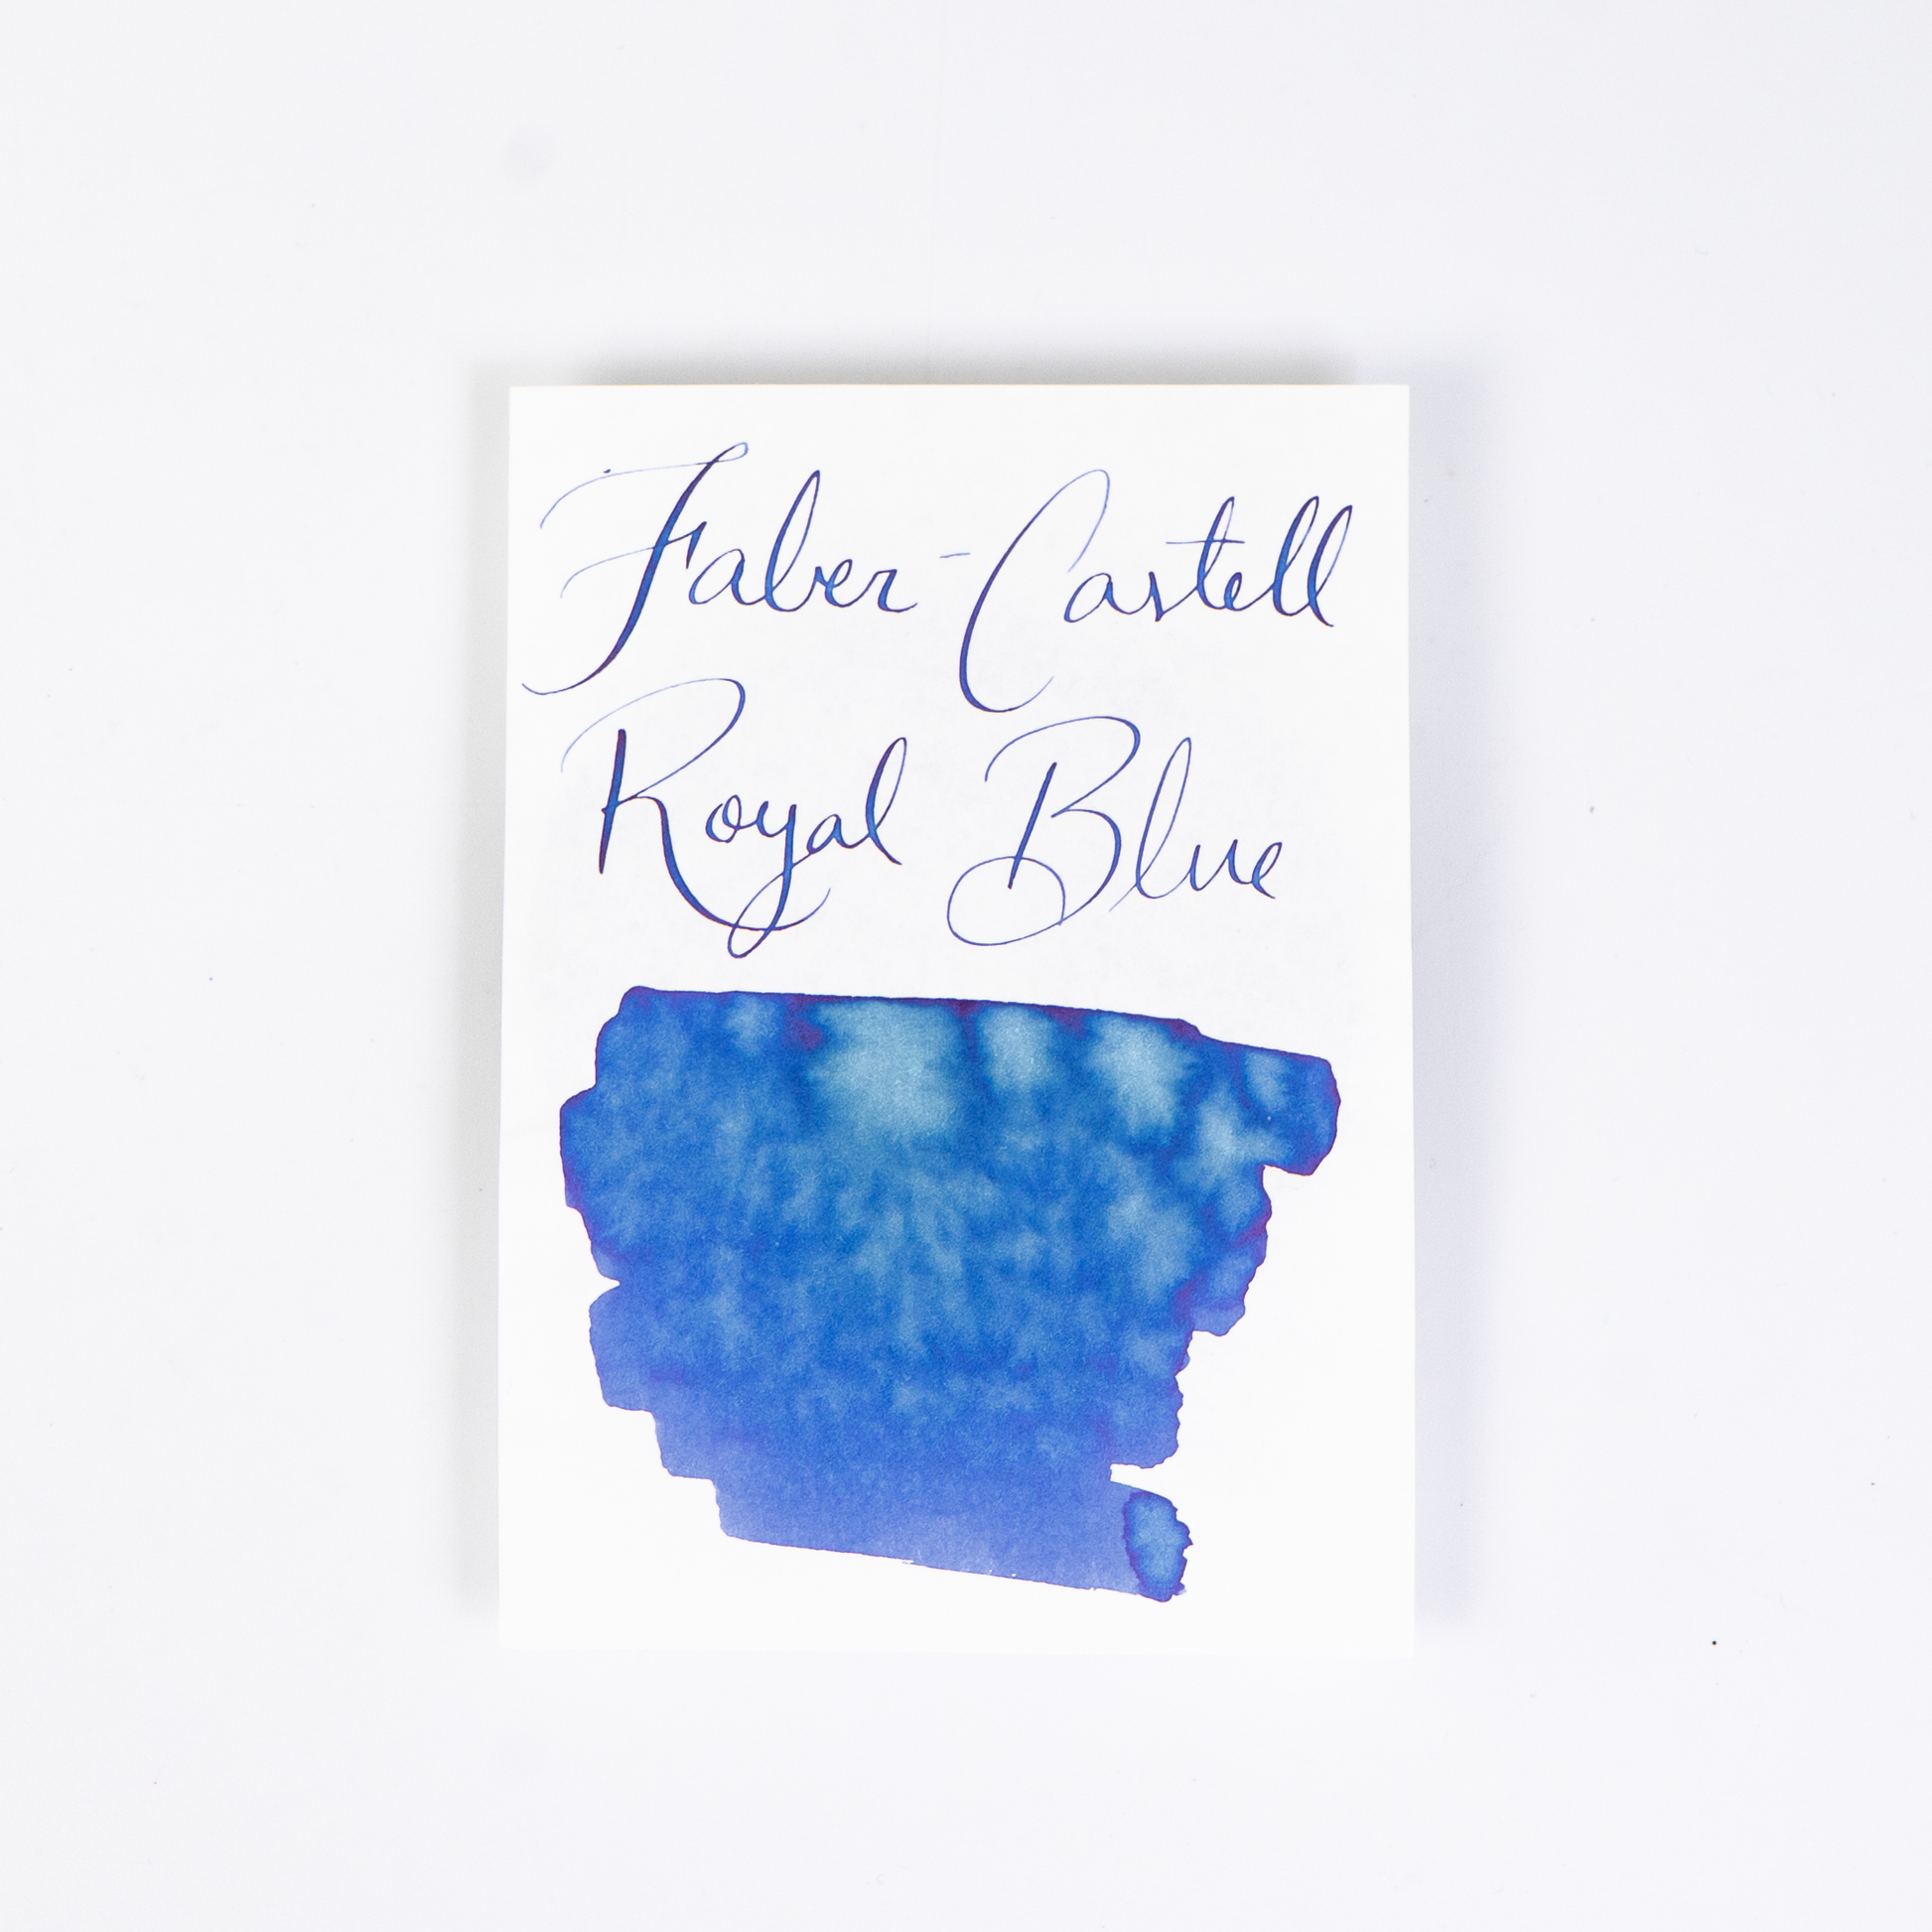 Faber-Castell
Royal Blue